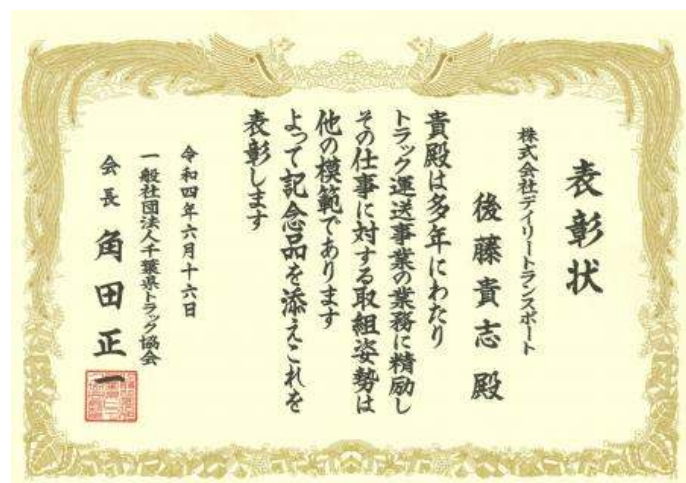 表彰状
株式会社デイリートランスポート
後藤貴志殿
貴殿は多年にわたり
トラック運送事業の業務に精励し
その仕事に対する取組姿勢は
他の模範であります
よって記念品を添えこれを
表彰します
令和四年六月十六日
一般社団法人千葉県トラック協会
会長 角田正一